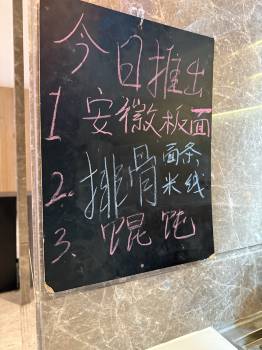 今日推出
1 安徽板面
2. 排骨 面条
米线
3. 馄饨